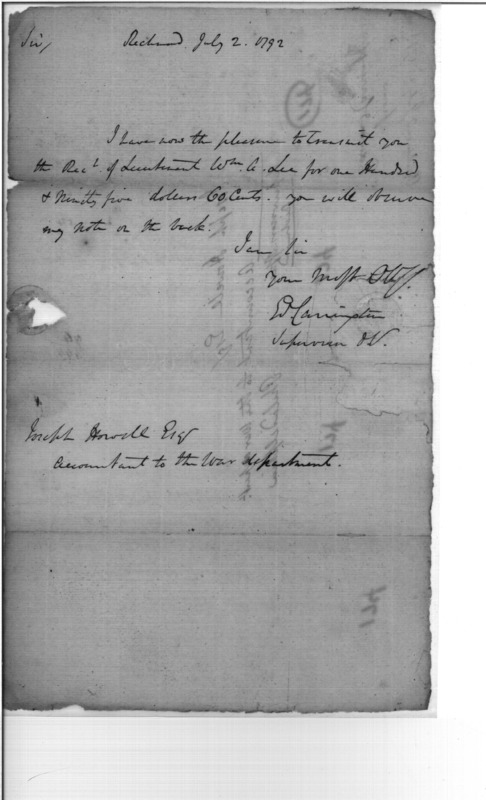 Sir, Richmond July 2. 1792
I have now the pleasure to transmit you
the Rect. of Lieutenant Wm. A. Lee for one Hundred
& Ninety five dollars 60 Cents. you will observe
my note on the back.
I am Sir
your Most Obt.
Ed Carrington
Supervisor
Joseph Howell Esqr
Accountant to the War department.